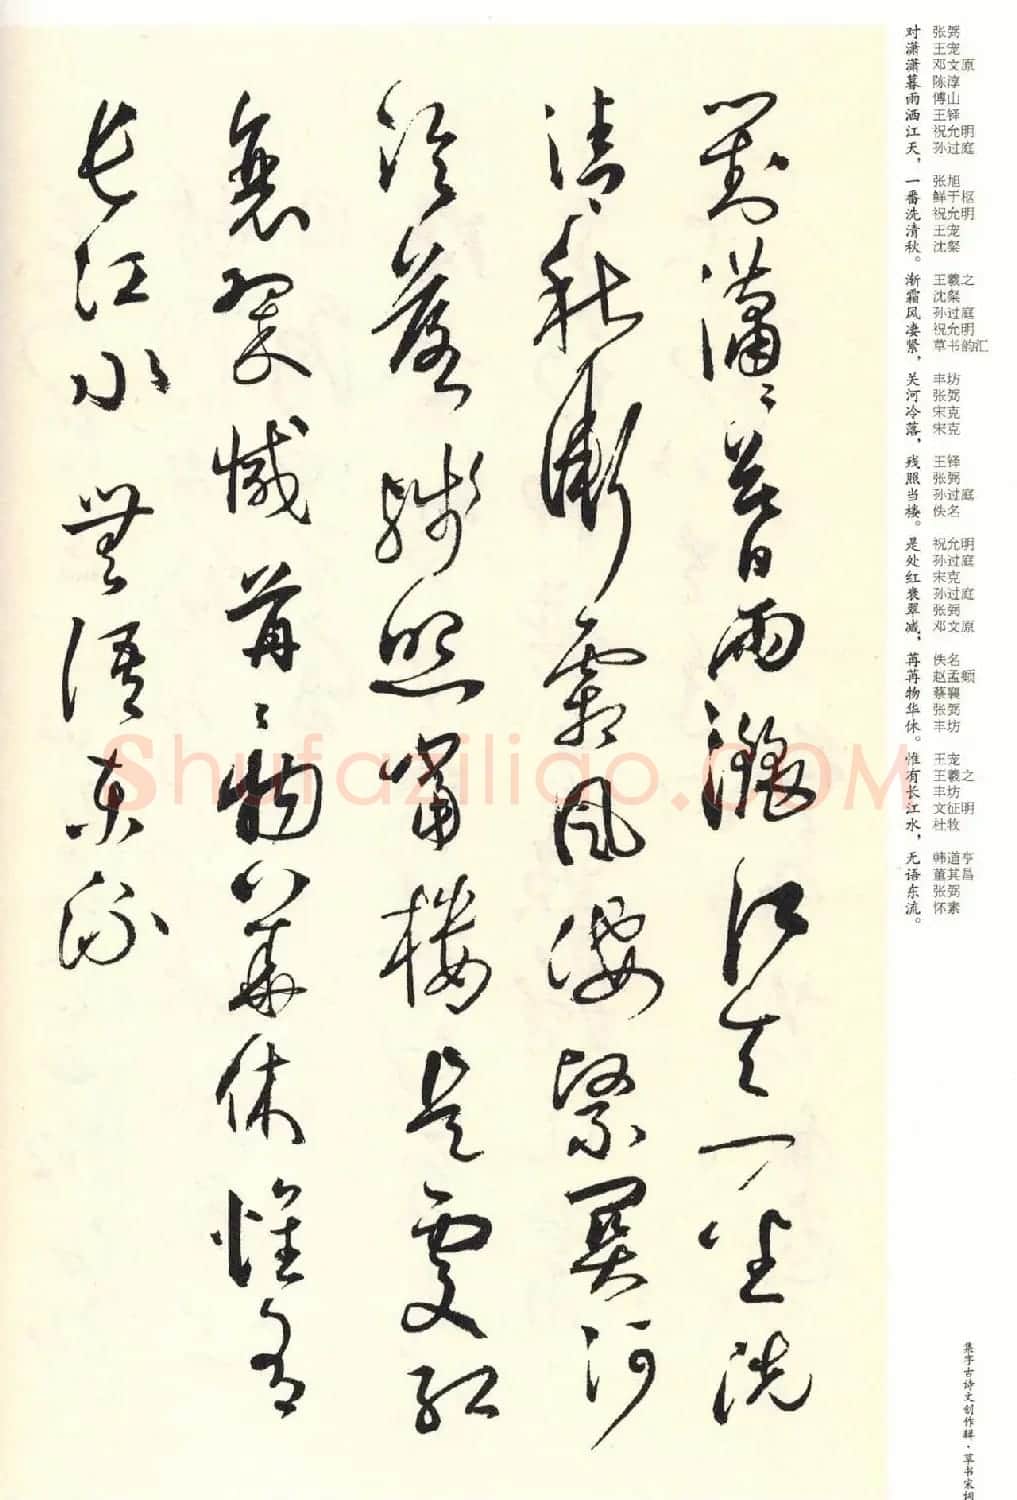 对 张弼
潇 王宠
潇 邓文原
暮 陈淳
雨 傅山
洒 王铎
江 祝允明
天， 孙过庭
一 张旭
番 鲜于枢
洗 祝允明
清 王宠
秋。 沈粲
渐 王羲之
霜 沈粲
风 孙过庭
凄 祝允明
紧， 草书韵汇
关 丰坊
河 张弼
冷 宋克
落， 宋克
残 王铎
照 张弼
当 孙过庭
楼。 佚名
是 祝允明
处 孙过庭
红 宋克
衰 孙过庭
翠 张弼
减， 邓文原
苒 佚名
苒 赵孟頫
物 蔡襄
华 张弼
休。 丰坊
惟 王宠
有 王羲之
长 丰坊
江 文征明
水， 杜牧
无 韩道亨
语 董其昌
东 张弼
流。 怀素
集字古诗文创作辑·草书宋词
對瀟〻暮雨灑江天一番洗
清秋漸霜風凄緊關河
冷落殘照當樓是處紅
衰翠減苒〻物華休惟有
長江水無語東流
Shufaziliao.COM